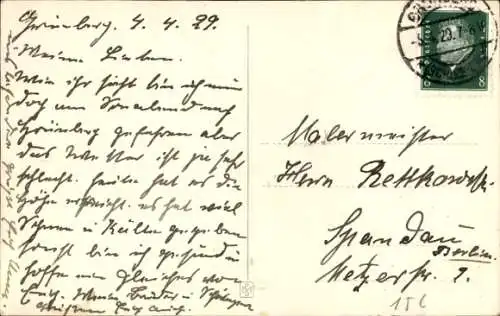 Grünberg. 4. 4. 29.
Meine Lieben.
Wie ihr seht bin ich nun
doch am Sonnabend nach
Grünberg gefahren aber
das Wetter ist ja sehr
schlecht. heute hat es die
Höhe erreicht. es hat viel
Schnee u Kälte gegeben
sonst bin ich gesund u
hoffe ein gleiches von
Euch. Meine Brüder u
grüßen Euch auch.
8 8
Malermeister
Herrn Rettkowski
Spandau
Berlin.
Metzerstr. 9.
156